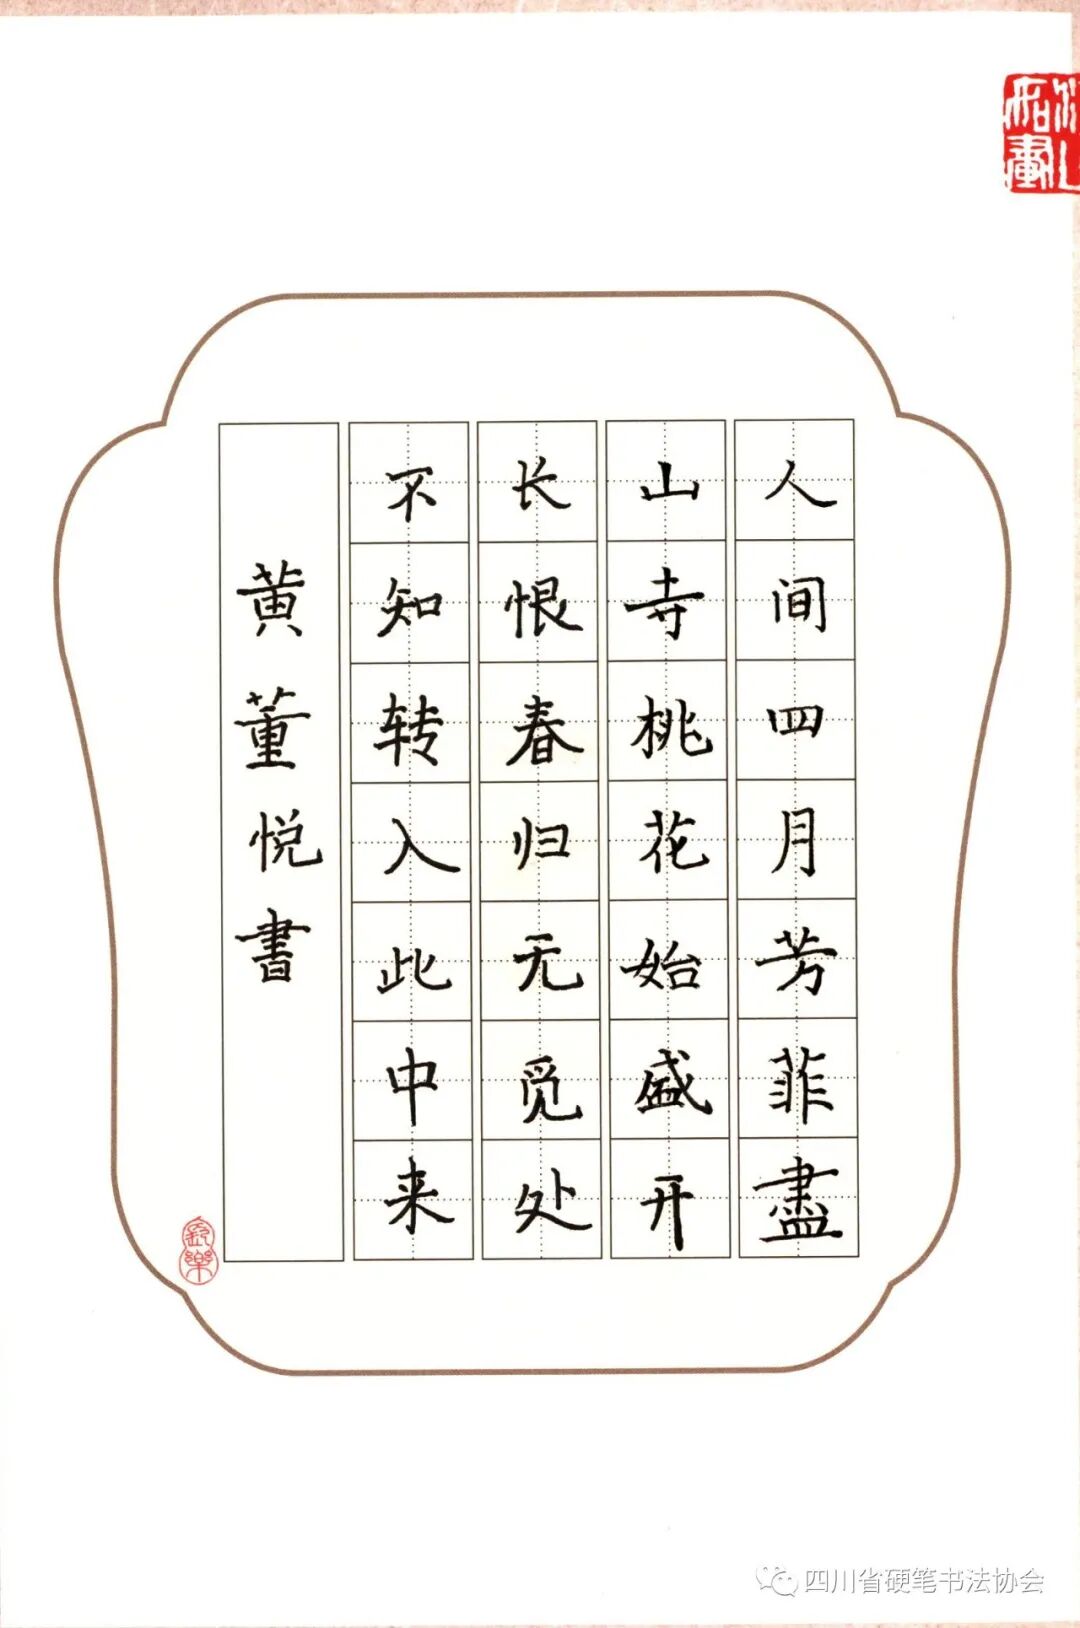 人间四月芳菲盡
山寺桃花始盛开
长恨春归无觅处
不知转入此中来
黄董悦書
四川省硬笔书法协会